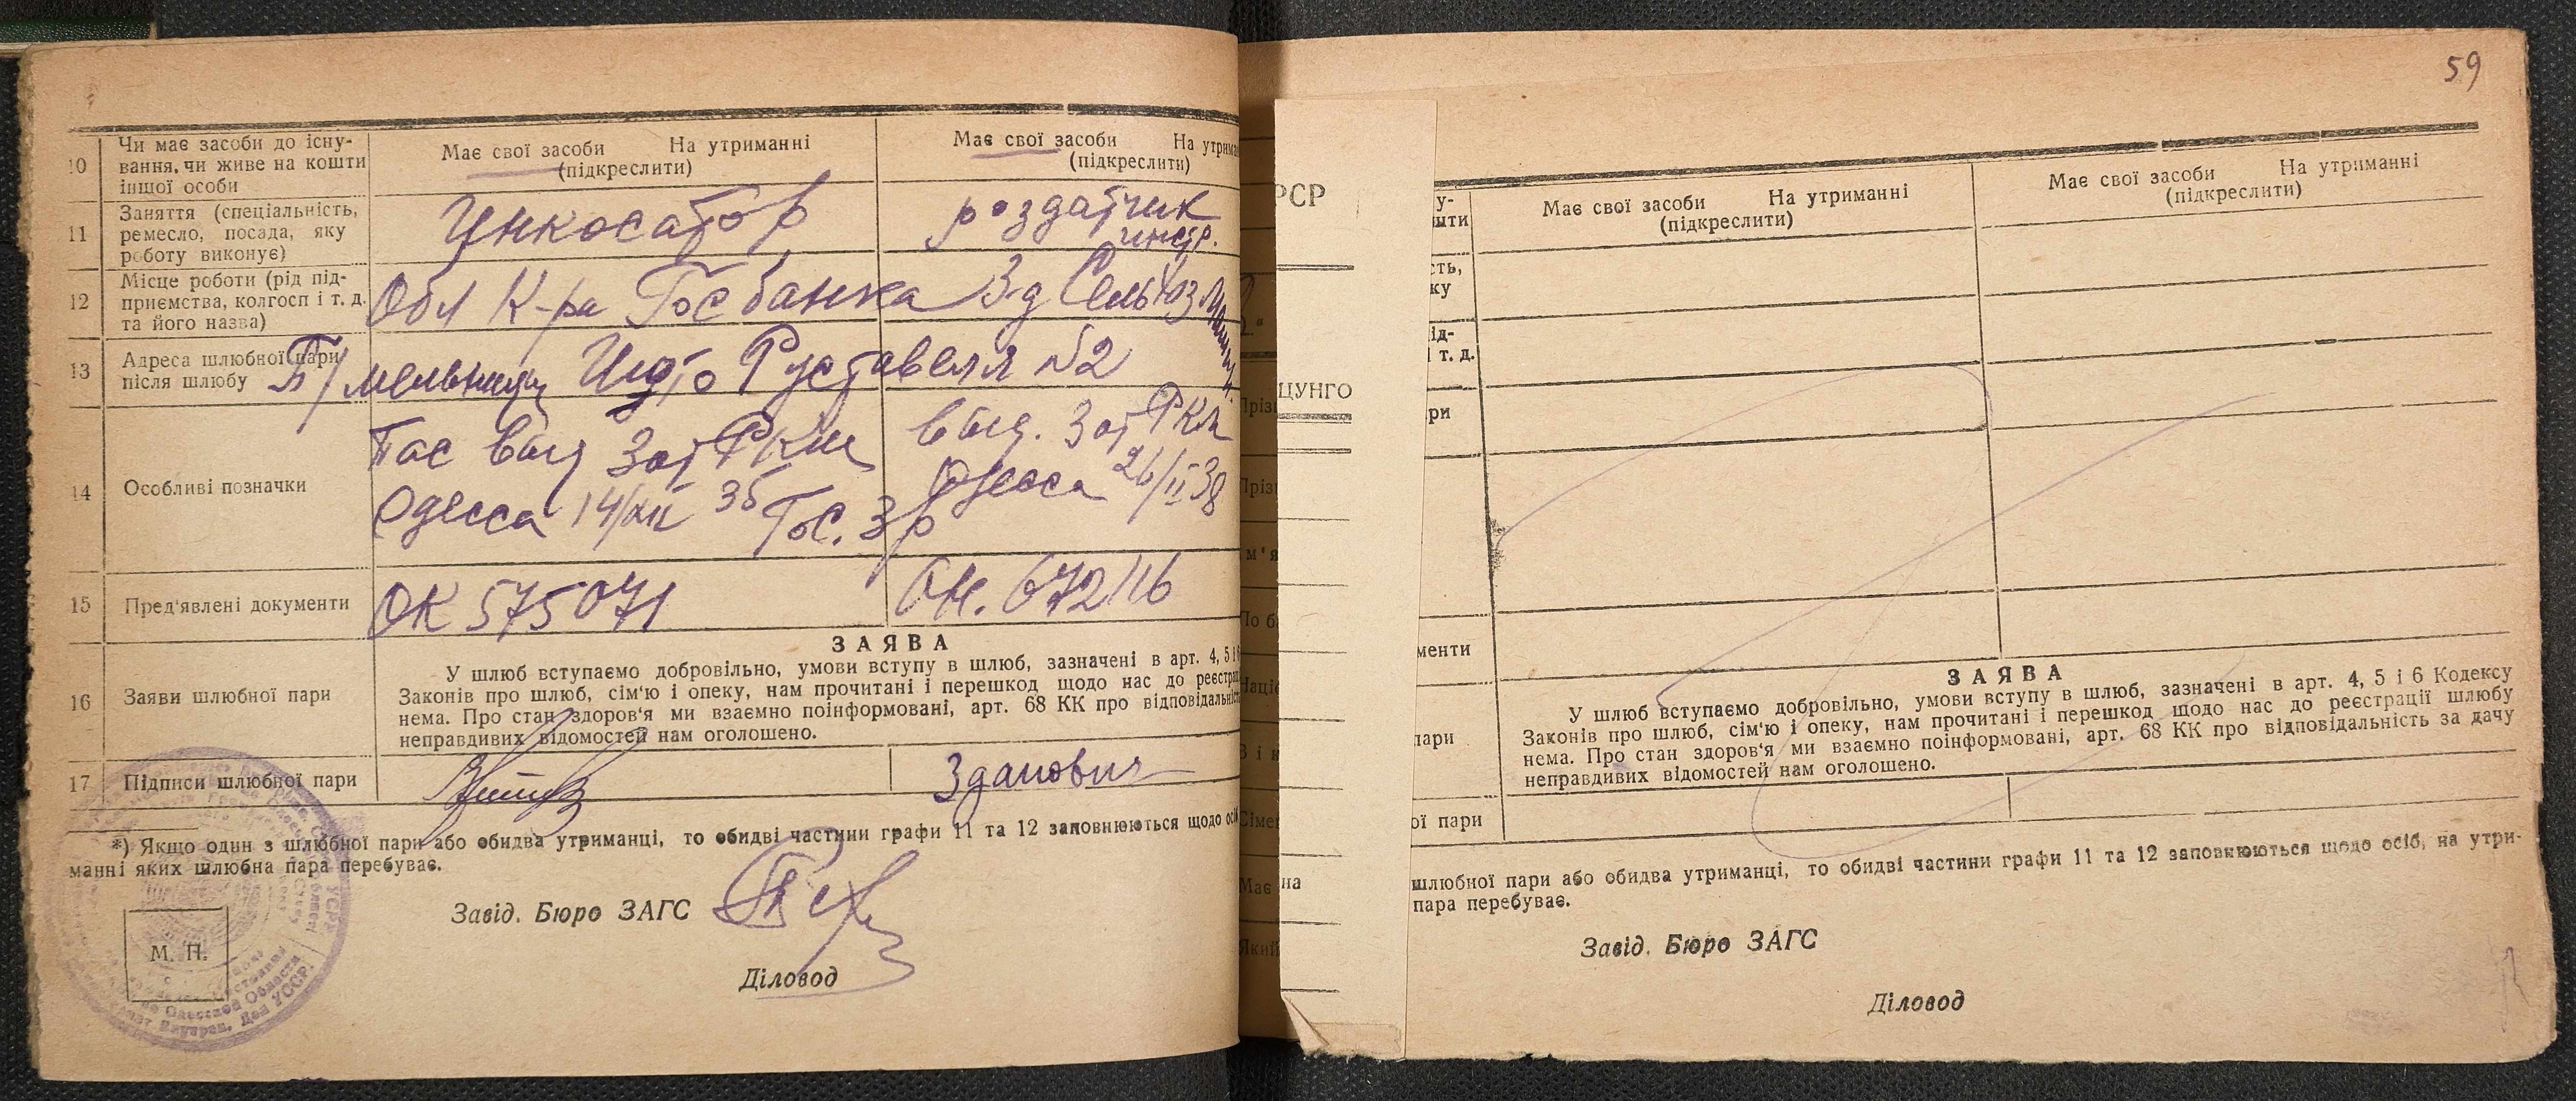 59
10 Чи має засоби до існу-
вання, чи живе на кошти
іншої особи
Має свої засоби На утриманні
(підкреслити)
Має свої засоби На утрима
(підкреслити)
11 Заняття (спеціальність,
ремесло, посада, яку
роботу виконує)
Инкосатор
роздатчик
инстр.
12 Місце роботи (рід під-
приємства, колгосп і т. д.
та його назва)
Обл К-ра Госбанка
З-д Сельхоз
13 Адреса шлюбної пари
після шлюбу
Б/мельница
Руставелли №2
14 Особливі позначки
Пас выд 3 от РКМ
Одесса 14/XII
выд. 3 от РКМ
Одесса 26/II 38
15 Пред'явлені документи
ОК 575071
672116
16 Заяви шлюбної пари
ЗАЯВА
У шлюб вступаємо добровільно, умови вступу в шлюб, зазначені в арт. 4, 5 і 6
Законів про шлюб, сім'ю і опеку, нам прочитані і перешкод щодо нас до реєстрац
нема. Про стан здоров'я ми взаємно поінформовані, арт. 68 КК про відповідальність
неправдивих відомостей нам оголошено.
17 Підписи шлюбної пари
Зданович
*) Якщо один з шлюбної пари або обидва утриманці, то обидві частини графи 11 та 12 заповнюються щодо осіб
манні яких шлюбна пара перебуває.
М. П.
Завід. Бюро ЗАГС
Діловод
РСР
ЦУНГО
на
у-
шти
Має свої засоби На утриманні
(підкреслити)
Має свої засоби На утриманні
(підкреслити)
сть,
ку
ід-
і т. д.
ри
менти
пари
ЗАЯВА
У шлюб вступаємо добровільно, умови вступу в шлюб, зазначені в арт. 4, 5 і 6 Кодексу
Законів про шлюб, сім'ю і опеку, нам прочитані і перешкод щодо нас до реєстрації шлюбу
нема. Про стан здоров'я ми взаємно поінформовані, арт. 68 КК про відповідальність за дачу
неправдивих відомостей нам оголошено.
ої пари
шлюбної пари або обидва утриманці, то обидві частини графи 11 та 12 заповнюються щодо осіб, на утри-
пара перебуває.
Завід. Бюро ЗАГС
Діловод